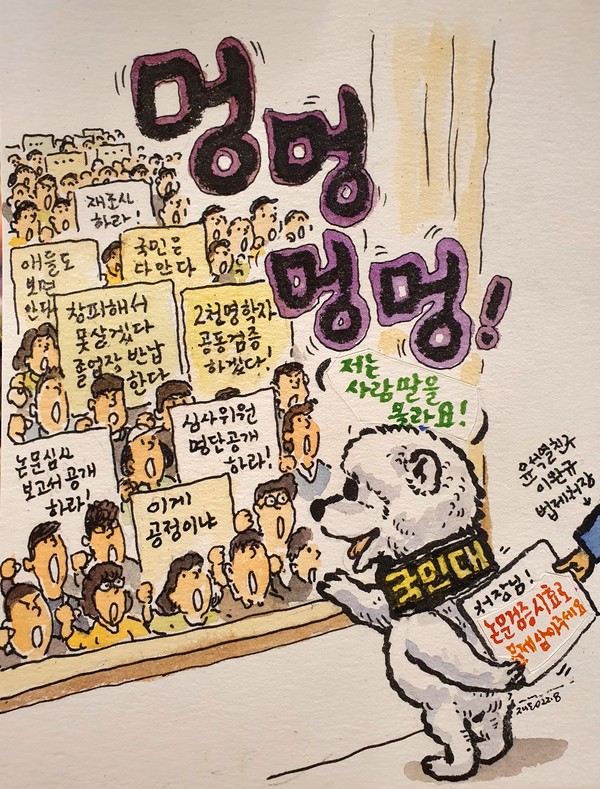 멍
멍
멍
멍!
재조사
하라!
애들도
보면
안다
국민은
다 안다
창피해서
못살겠다
졸업장 반납
한다
2천명학자
공동검증
하겠다!
저는
사람 말을
몰라요!
논문심사
보고서 공개
하라!
심사위원
명단공개
하라!
이게
공정이냐
국민대
윤석열친구
이완규
법제처장
처장님!
논문검증시효로
문제 삼아주세요